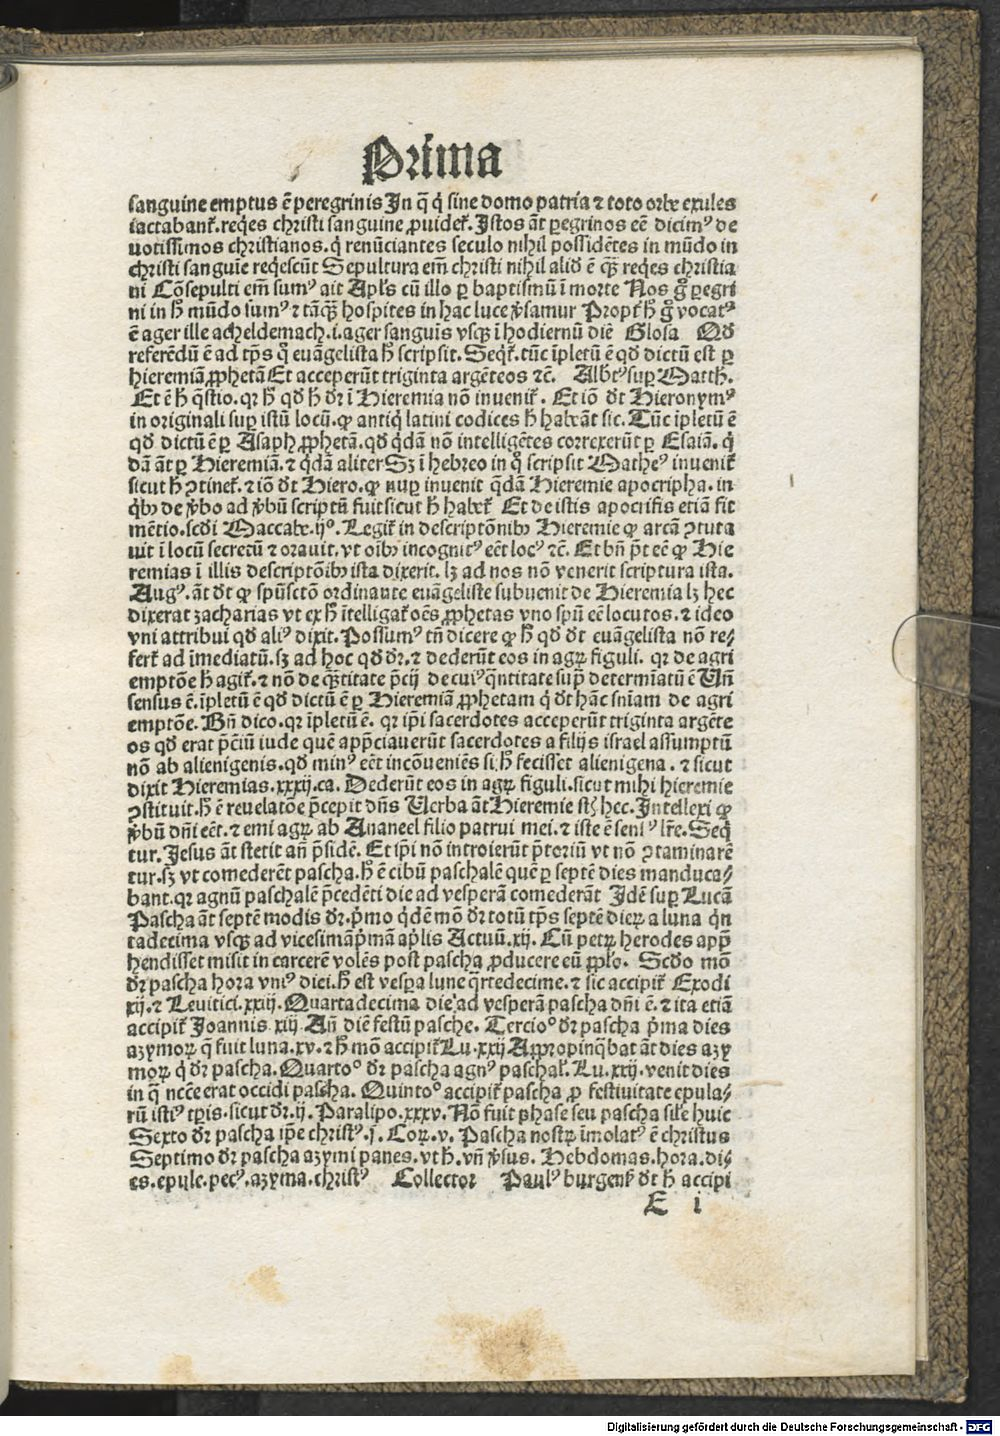 Prima
sanguine emptus ē peregrinis In q̄ q̇ sine domo patria ⁊ toto orbe exules
iactabanť. reqͥes christi sanguine ꝓuideť. Istos āt ꝑegrinos eē dicimꝰ de
uotissimos christianos. q̇ renūciantes seculo nihil possidētes in mūdo in
christi sanguīe reqͥescūt Sepultura em̄ christi nihil aliđ ē qꝫ̄ reqͥes christia
ni Cōsepulti em̄ sumꝰ ait Apl̄s cū illo ꝑ baptismū ī morte Nos g̊ ꝑegri
ni in h̄ mūdo sumꝰ ⁊ tāqꝫ̄ hospites in hac luce v̓samur Propť h̄ g̊ vocatꝰ
ē ager ille acheldemach .i. ager sanguīs vsqꝫ ī hodiernū diē Glosa Qđ
referēdū ē ad tp̄s q̊ euāgelista h̄ scripsit. Seqť. tūc īpletū ē qđ dictū est ꝑ
hieremiā ꝓphetā Et acceperūt triginta argēteos ⁊c̄. Albťꝰ suꝑ Matth.
Et ē h̄ q̄stio. qꝛ h̄ qđ h̄ đꝛ ī Hieremia nō inueniť. Et iō đt Hieronymꝰ
in originali suꝑ istū locū. ꝙ antiq̇ latini codices h̄ habēāt sic. Tūc īpletū ē
qđ dictū ē ꝑ Asaph ꝓphetā. qđ q̇dā nō intelligētes correxerūt ꝑ Esaiā. q̇
dā āt ꝑ Hieremiā. ⁊ q̇dā aliter Sꝫ ī hebreo in q̊ scripsit Matheꝰ inueniť
sicut h̄ ↄtineť. ⁊ iō đt Hiero. ꝙ nuꝑ inuenit q̄dā Hieremie apocripha. in
q̇bꝫ de v̓bo ad v̓bū scriptū fuit sicut h̄ habeť Et de istis apocrifis etiā fit
mētio. scđi Maccabe. ijº. Legiť in descriptōnibꝫ Hieremie ꝙ arcā ↄtuta
uit ī locū secretū ⁊ orauit. vt oībꝫ incognitꝰ eēt locꝰ ⁊c̄. Et bn̄ p̄t eē ꝙ Hie
remias ī illis descriptōībꝫ ista dixerit. lꝫ ad nos nō venerit scriptura ista.
Augꝰ. āt đt ꝙ spūsctō ordinante euāgeliste subuenit de Hieremia lꝫ hec
dixerat zacharias vt ex h̄ ītelligať oēs ꝓphetas vno spū eē locutos. ⁊ ideo
vni attribui qđ aliꝰ dixit. Possumꝰ tn̄ dicere ꝙ h̄ qđ đt euāgelista nō re⸗
ferť ad īmediatū. sꝫ ad hoc qđ đꝛ. ⁊ dederūt eos in agꝝ figuli. qꝛ de agri
emptōe h̄ agiť. ⁊ nō de qꝫ̄titate p̄cij de cuiꝰ q̄ntitate supͣ determīatū ē Vn̄
sensus ē. īpletū ē qđ dictū ē ꝑ Hieremiā ꝓphetam q̇ đt hāc snīam de agri
emptōe. Bn̄ dico. qꝛ īpletū ē. qꝛ ip̄i sacerdotes acceperūt triginta argēte
os qđ erat p̄ciū iude quē app̄ciauerūt sacerdotes a filijs israel assumptū
nō ab alienigenis. qđ minꝰ eēt incōueniēs si h̄ fecisset alienigena. ⁊ sicut
dixit Hieremias. xxxij. ca. Dederūt eos in agꝝ figuli. sicut mihi hieremie
ↄstituit. h̄ ē reuelatōe p̄cepit dn̄s Verba āt Hieremie st̄ hec. Intellexi ꝙ
v̓bū dn̄i eēt. ⁊ emi agꝝ ab Ananeel filio patrui mei. ⁊ iste ē senꝰ lr̄e. Seq̇
tur. Jesus āt stetit an̄ p̄sidē. Et ip̄i nō introierūt p̄toriū vt nō ↄtaminarē
tur. sꝫ vt comederēt pascha. h̄ ē cibū paschalē quē ꝑ septē dies manduca⸗
bant. qꝛ agnū paschalē p̄cedēti die ad vesperā comederāt Idē suꝑ Lucā
Pascha āt septē modis đꝛ. p̓mo q̇dē mō đꝛ totū tp̄s septē dieꝝ a luna q̇n
tadecima vsqꝫ ad vicesimāp̓mā ap̓lis Actuū. xij. Cū petꝝ herodes app̄
hendisset misit in carcerē volēs post pascha ꝓducere eū ꝓplo. Scđo mō
đꝛ pascha hora vniꝰ diei. h̄ est vesꝑa lune q̄rtedecime. ⁊ sic accipiť Exodi
xij. ⁊ Leuitici. xxiij. Quartadecima die ad vesperā pascha dn̄i ē. ⁊ ita etiā
accipiť Joannis xiij An̄ diē festū pasche. Tercioº đꝛ pascha p̓ma dies
azymoꝝ q̄ fuit luna. xv. ⁊ h̄ mō accipiť Lu. xxij Appropinq̄bat āt dies azy
moꝝ q̇ đꝛ pascha. Quartoº đꝛ pascha agnꝰ paschať. Lu. xxij. venit dies
in q̄ ncc̄e erat occidi pascha. Quintoº accipiť pascha ꝓ festiuitate epula⸗
rū istiꝰ tꝑis. sicut đꝛ. ij. Paralipo. xxxv. Nō fuit phase seu pascha sil̄e huic
Sexto đꝛ pascha ip̄e christꝰ. j. Coꝝ. v. Pascha nostꝝ īmolatꝰ ē christus
Septimo đꝛ pascha azymi panes. vt h̄. vn̄ v̓sus. Hebdomas. hora. di⸗
es. epule. pecꝰ. azyma. christꝰ Collector Paulꝰ burgenť đt h̄ accipi
E i
Digitalisierung gefördert durch die Deutsche Forschungsgemeinschaft - DFG